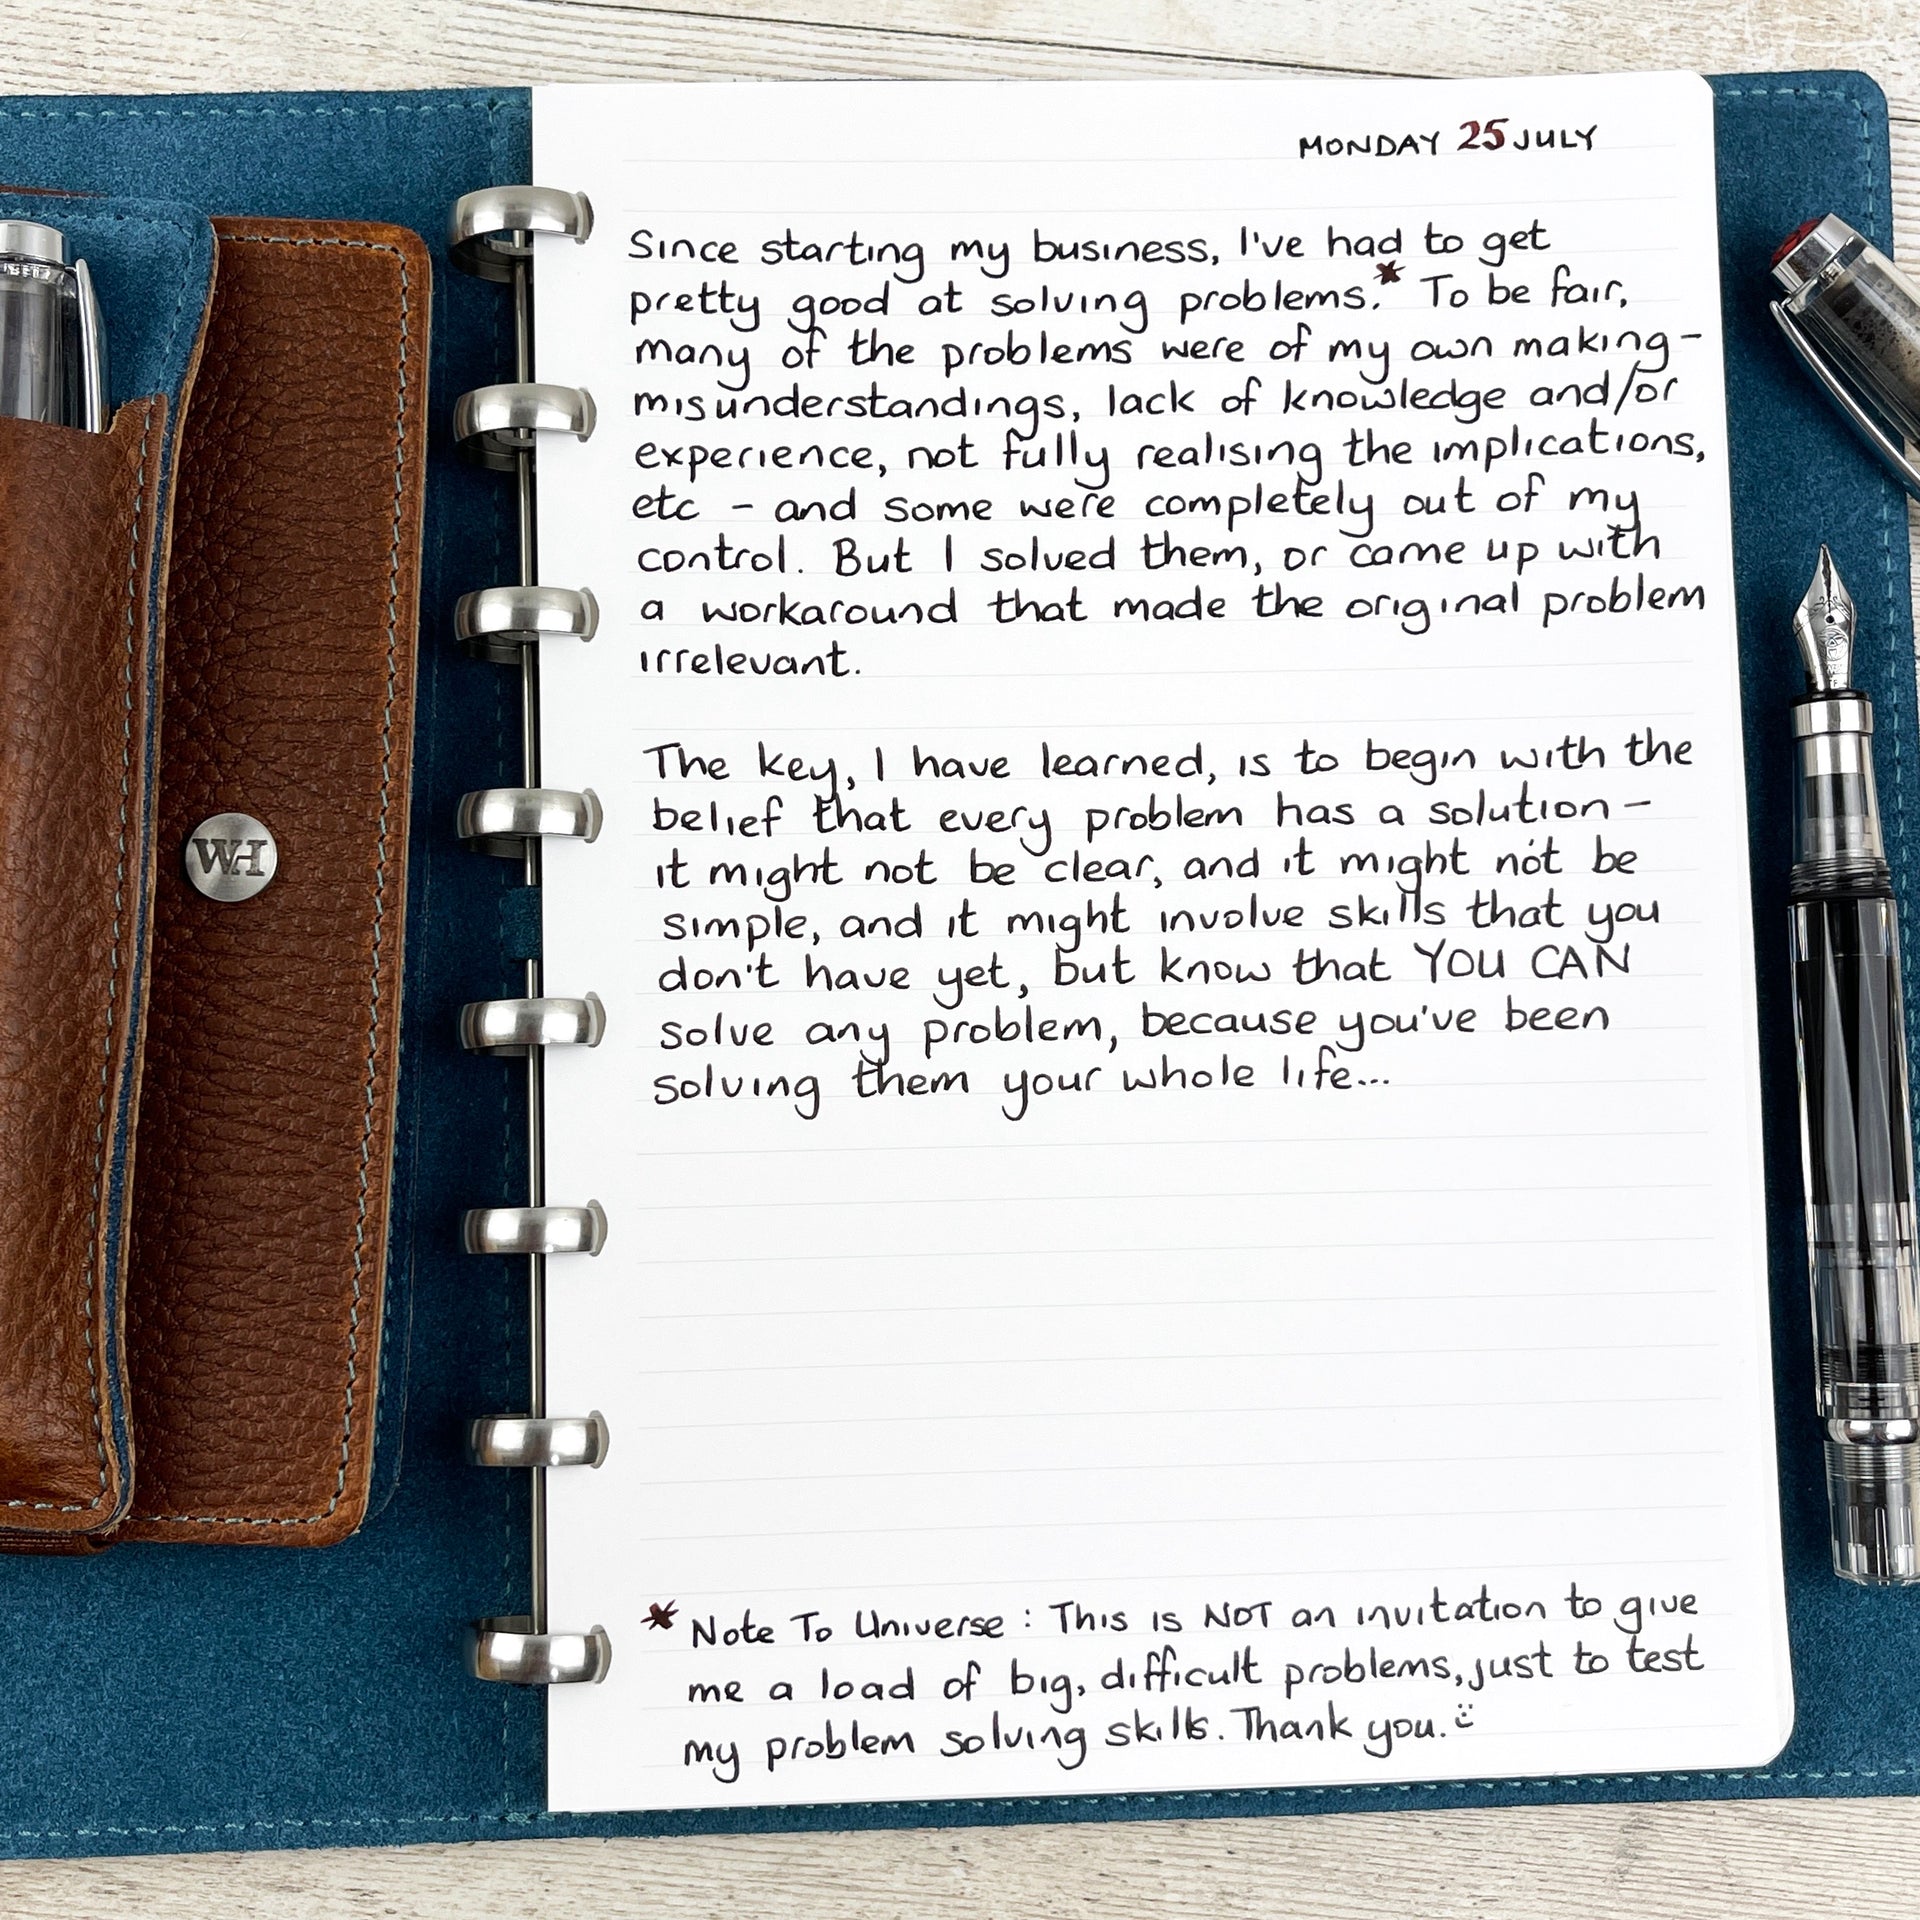 MONDAY 25 JULY
Since starting my business, I've had to get
pretty good at solving problems.* To be fair,
many of the problems were of my own making -
misunderstandings, lack of knowledge and/or
experience, not fully realising the implications,
etc - and some were completely out of my
control. But I solved them, or came up with
a workaround that made the original problem
irrelevant.
The key, I have learned, is to begin with the
belief that every problem has a solution -
it might not be clear, and it might not be
simple, and it might involve skills that you
don't have yet, but know that YOU CAN
solve any problem, because you've been
solving them your whole life...
* Note To Universe : This is NOT an invitation to give
me a load of big, difficult problems, just to test
my problem solving skills. Thank you. :)
WH